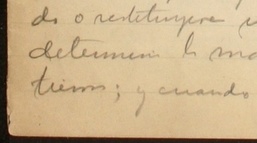 do o restituyera
determin la ma
tierra; y cuando